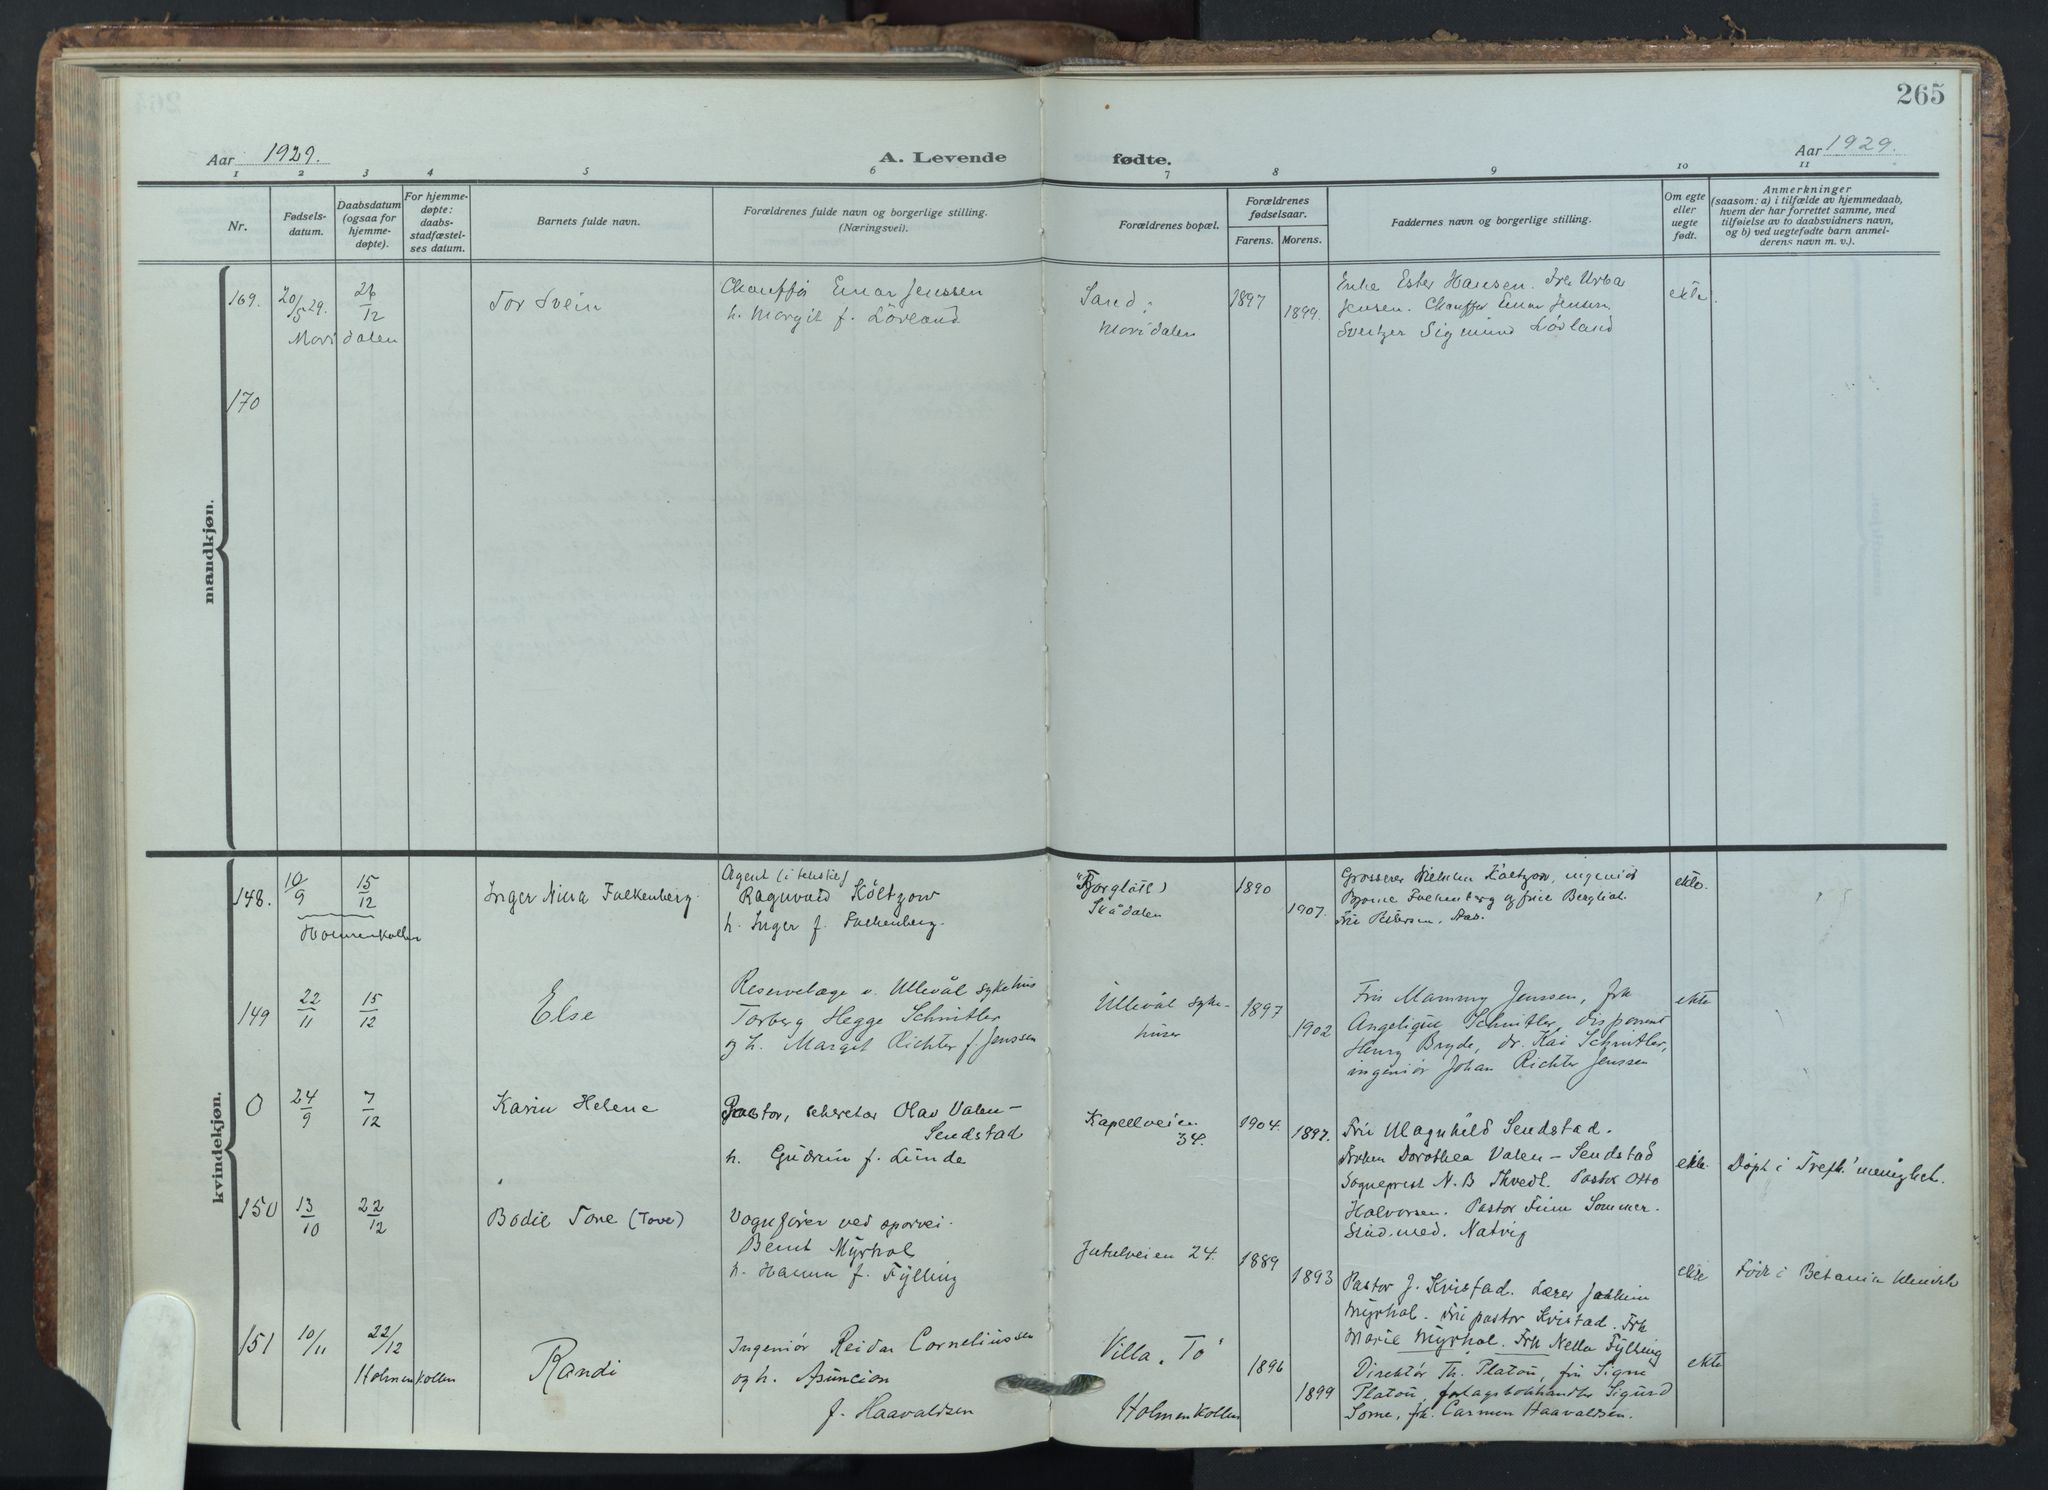 265
Aar 1929.
A. Levende
fødte.
Aar 1929.
1 2 3 4 5 6 7 8 9 10 11
Nr.
Fødsels-
datum.
Daabsdatum
(ogsaa for
hjemme-
døpte).
For hjemme-
døpte:
daabs
stadfæstel-
ses datum.
Barnets fulde navn.
Forældrenes fulde navn og borgerlige stilling.
(Næringsvei).
Forældrenes bopæl.
Forældrenes
fødselsaar.
Farens. Morens.
Faddernes navn og borgerlige stilling.
Om egte
eller
uegte
født.
Anmerkninger
(saasom: a) i tilfælde av hjemmedaab,
hvem der har forrettet samme, med
tilføielse av to daabsvidners navn,
og b) ved uegtefødte barn anmel-
derens navn m. v.).
mandkjøn.
169.
20/5 29.
26/12
Maridalen
Tor Svein
Chauffør Einar Jenssen
h. Margit f. Lövland
Sand,
Maridalen
1897
1899
Enke Ester Hansen. Frk Urba
Jensen. Chauffør Einar Jensen
Sigmund Lövland
ekte
170
kvindekjøn.
148.
10/9
15/12
Holmenkollen
Inger Nina Falkenberg.
Agent (i tekstil)
Ragnvald Költzow
h. Inger f. Falkenberg.
Skådalen
1890
1907.
Grosserer Vilhelm Költzow, ingeniør
Bjarne Falkenberg og frue Bergliot.
Fru Petersen.
ekte.
149
22/11
15/12
Else
Reservelæge v. Ullevål sykehus
Torberg Hegge Schnitler
og h. Margit Richter f Jenssen
Ullevål syke-
huset
1897
1902
Fru Mammy Jenssen, frk
Angelique Schnitler, disponent
Henry Bryde, dr. Kai Schnitler,
ingeniør Johan Richter Jenssen
ekte
0
24/9
7/12
Karin Helene
Pastor, sekretær Olav Valen-
Sendstad
h. Gudrun f. Lunde
Kapellveien
34.
1904.
1897.
Fru Magnhild Sendstad.
Frøken Dorothea Valen-Sendstad
Sogneprest N. B Thvedt. Pastor Otto
Halvorsen. Pastor Finn Sommer.
Stud. med. Natvig
ekte.
Døpt i Trefk. menighet.
150
13/10
22/12
Bodil Tone (Tove)
Vognfører ved sporvei.
Bernt Myrhol
h. Hanna f. Fylling
Jutulveien 24.
1889
1893
Pastor J. Kvistad. Lærer Joakim
Myrhol. Fru pastor Kvistad. Frk
Marie Myrhol. Frk Nella Fylling
ekte
Født i Betania
151
10/11
22/12
Holmenkollen
Randi
Ingeniør Reidar Corneliussen
og h. Asuncion
f. Haavaldsen
Villa "To"
Holmenkollen
1896
1899
Direktør Th. Platou, fru Signe
Platou, forlagsbokhandler Sigurd
Some, frk. Carmen Haavaldsen.
ekte